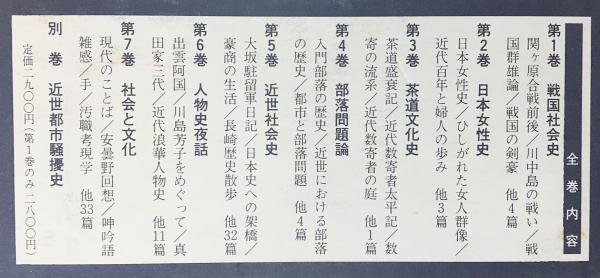 全巻内容
第1巻 戦国社会史
関ヶ原合戦前後／川中島の戦い／戦
国群雄論／戦国の剣豪 他4篇
第2巻 日本女性史
日本女性史／ひしがれた女人群像／
近代百年と婦人の歩み 他3篇
第3巻 茶道文化史
茶道盛衰記／近代数寄者太平記／数
寄の流系／近代数寄者の庭 他1篇
第4巻 部落問題論
入門部落の歴史／近世における部落
の歴史／都市と部落問題 他4篇
第5巻 近世社会史
大坂駐留軍日記／日本史への架橋／
豪商の生活／長崎歴史散歩 他32篇
第6巻 人物史夜話
出雲阿国／川島芳子をめぐって／真
田家三代／近代浪華人物史 他11篇
第7巻 社会と文化
現代のことば／安曇野回想／呻吟語
雑感／手／汚職考現学 他33篇
別巻 近世都市騒擾史
定価二九〇〇円（第1巻のみ二八〇〇円）